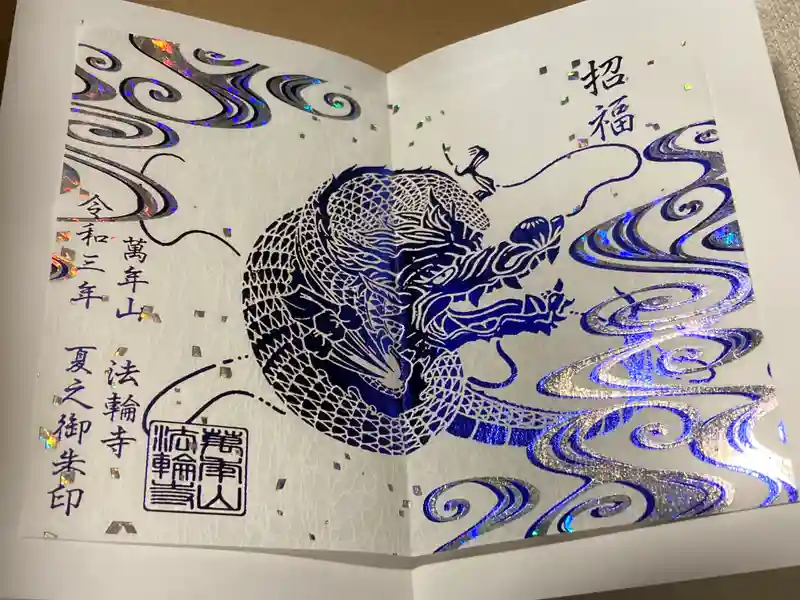 招福
萬年山
法輪寺
令和三年 夏之御朱印
萬年山
法輪寺